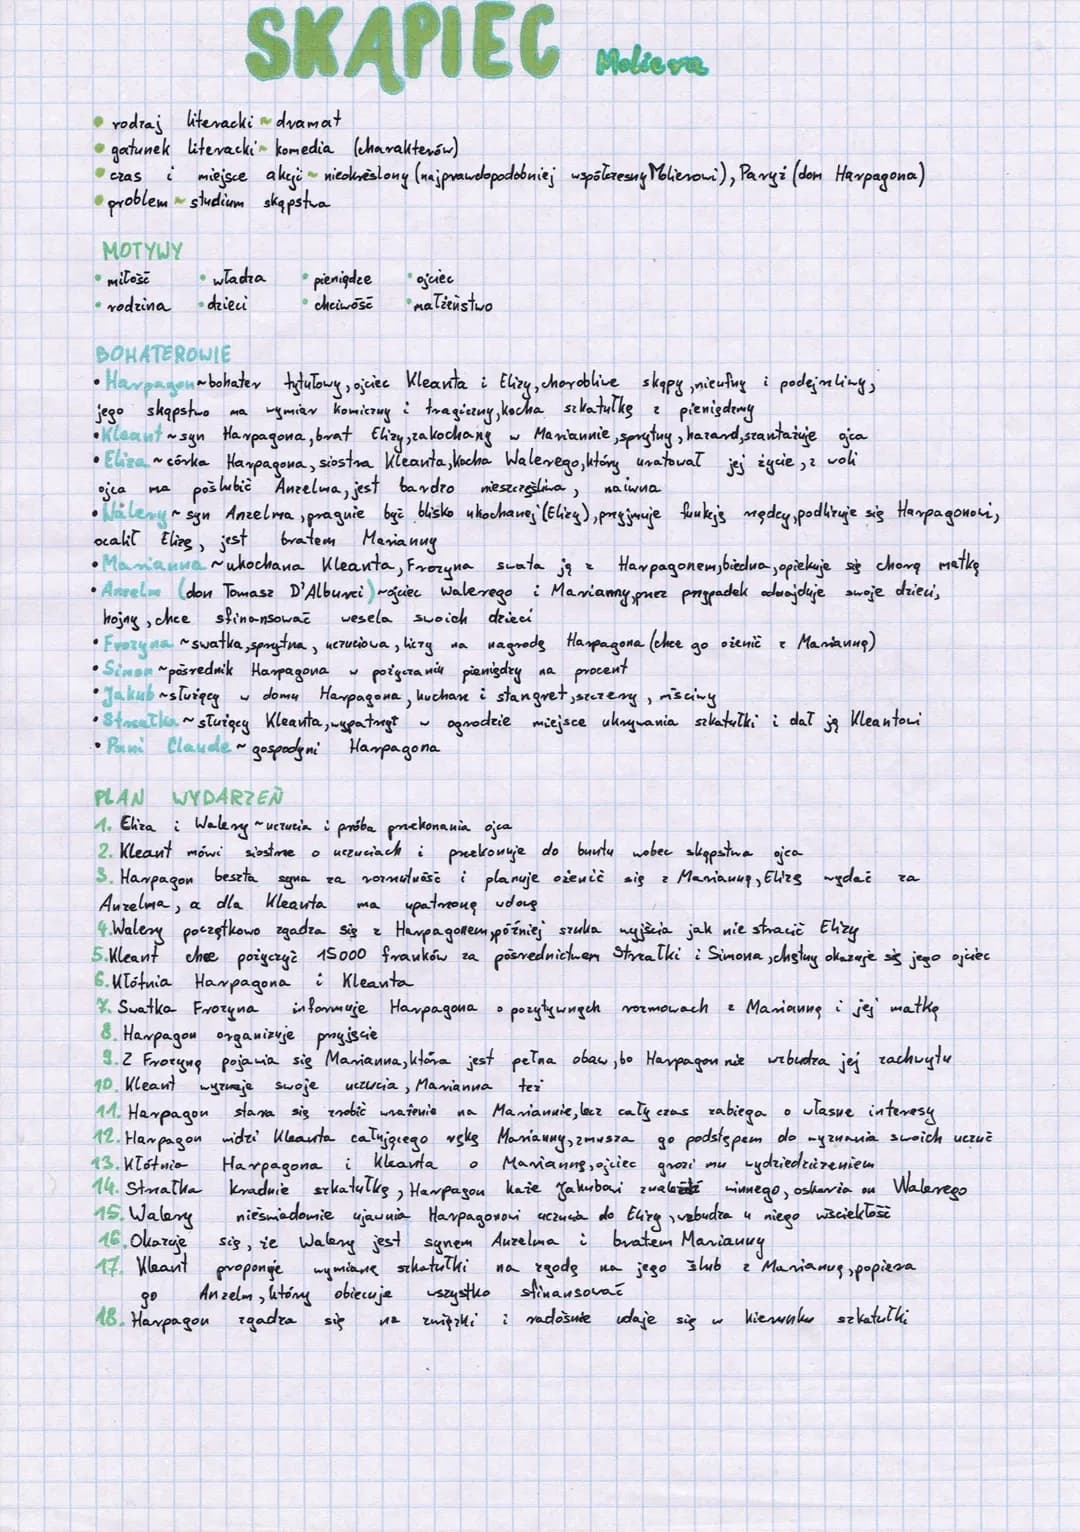 SKĄPIEC Moliera
• rodzaj literacki ~ dramat
• gatunek literacki ~ komedia (charakterów)
• czas i miejsce akcji ~ nieokreślony (najprawdopodobniej współczesny Molierowi), Paryż (dom Harpagona)
• problem ~ studium skąpstwa
MOTYWY
• miłość • władza • pieniądze • ojciec
• rodzina • dzieci • chciwość • małżeństwo
BOHATEROWIE
• Harpagon ~ bohater tytułowy, ojciec Kleanta i Elizy, chorobliwe skąpy, nieufny i podejrzliwy,
jego skąpstwo ma wymiar komiczny i tragiczny, kocha szkatułkę z pieniędzmy
• Kleant ~ syn Harpagona, brat Elizy, zakochany w Mariannie, sprytny, hazard, szantażuje ojca
• Eliza ~ córka Harpagona, siostra Kleanta, kocha Walerego, który uratował jej życie, z woli
ojca ma poślubić Anzelma, jest bardzo nieszczęśliwa, naiwna
• Walery ~ syn Anzelma, pragnie być blisko ukochanej (Elizy), przyjmuje funkcję rządcy, podlizuje się Harpagonowi,
ocalił Elizę, jest bratem Marianny
• Marianna ~ ukochana Kleanta, Frozyna swata ją z Harpagonem, biedna, opiekuje się chorą matką
• Anzelm (don Tomasz D'Alburci) ~ ojciec Walerego i Marianny, przez przypadek odnajduje swoje dzieci,
hojny, chce sfinansować wesela swoich dzieci
• Frozyna ~ swatka, sprytna, uczuciowa, liczy na nagrodę Harpagona (chce go ożenić z Marianną)
• Simon ~ pośrednik Harpagona w pożyczaniu pieniędzy na procent
• Jakub ~ służący w domu Harpagona, kucharz i stangret, szczery, mściwy
• Strzałka ~ służący Kleanta, wypatrzył w ogrodzie miejsce ukrywania szkatułki i dał ją Kleantowi
• Pani Claude ~ gospodyni Harpagona
PLAN WYDARZEŃ
1. Eliza i Walery ~ uczucia i próba przekonania ojca
2. Kleant mówi siostrze o uczuciach i przekonuje do buntu wobec skąpstwa ojca
3. Harpagon beszta syna za rozrzutność i planuje ożenić się z Marianną, Elizę wydać za
Anzelma, a dla Kleanta ma upatrzoną wdowę
4. Walery początkowo zgadza się z Harpagonem, później szuka wyjścia jak nie stracić Elizy
5. Kleant chce pożyczyć 15000 franków za pośrednictwem Strzałki i Simona, chętny okazuje się jego ojciec
6. Kłótnia Harpagona i Kleanta
7. Swatka Frozyna informuje Harpagona o pozytywnych rozmowach z Marianną i jej matką
8. Harpagon organizuje przyjęcie
9. Z Frozyną pojawia się Marianna, która jest pełna obaw, bo Harpagon nie wzbudza jej zachwytu
10. Kleant wyznaje swoje uczucia, Marianna też
11. Harpagon stara się zrobić wrażenie na Mariannie, lecz cały czas zabiega o własne interesy
12. Harpagon widzi Kleanta całującego rękę Marianny, zmusza go podstępem do wyznania swoich uczuć
13. Kłótnia Harpagona i Kleanta o Mariannę, ojciec grozi mu wydziedziczeniem
14. Strzałka kradnie szkatułkę, Harpagon każe Jakubowi znaleźć winnego, oskarża on Walerego
15. Walery nieświadomie ujawnia Harpagonowi uczucia do Elizy, wzbudza u niego wściekłość
16. Okazuje się, że Walery jest synem Anzelma i bratem Marianny
17. Kleant proponuje wymianę szkatułki na zgodę na jego ślub z Marianną, popiera
go Anzelm, który obiecuje wszystko sfinansować
18. Harpagon zgadza się na związki i radośnie udaje się w kierunku szkatułki